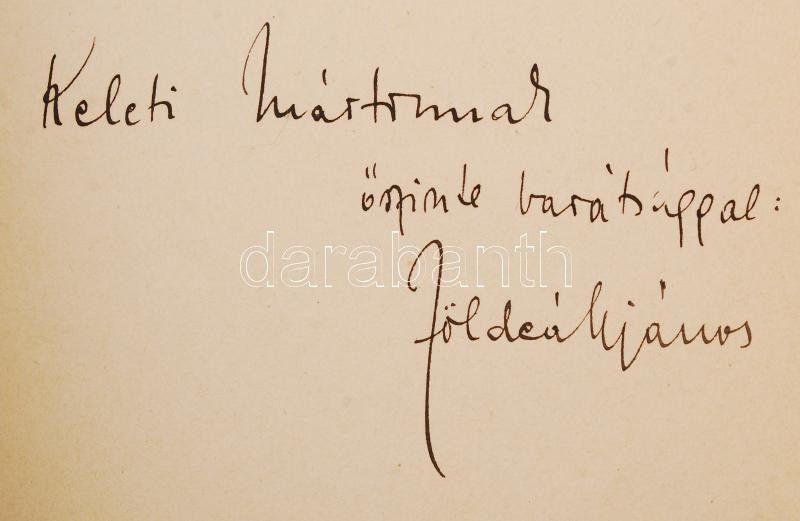 Keleti Mártonnak
őszinte barátsággal:
darabanth
Földeák János